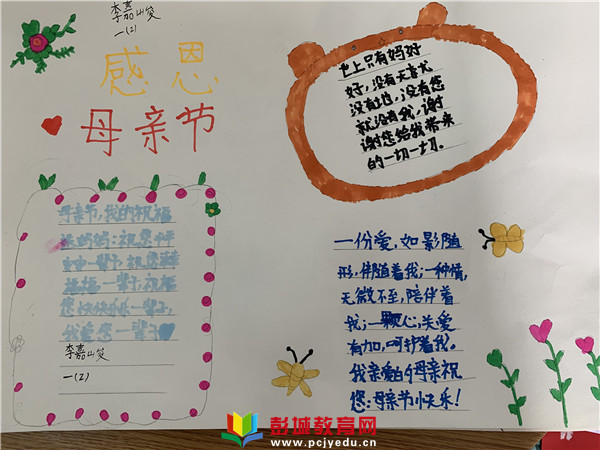 李嘉
一(2)
感恩
母亲节
世上只有妈妈
好，没有天言尤
没有地，没有您
就没有我，谢
谢您给我带来
的一切一切。
母亲节，我的祝福
送妈妈：祝您
一辈子，祝您
一辈子，祝福
您快快乐乐一辈子，
我爱您一辈子
李嘉
一(2)
一份爱，如影随
形，伴随着我；一种情，
无微不至，陪伴着
我；一颗心，关爱
有加，呵护着我。
我亲爱的母亲祝
您：母亲节快乐！
彭城教育网
www.pcjyedu.cn